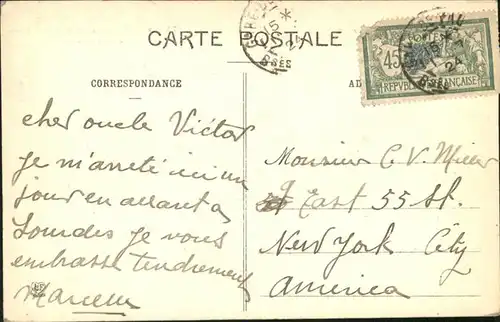 CARTE POSTALE
CORRESPONDANCE
AD
POSTES
45
REPUBLIQUE FRANÇAISE
15
24
cher oncle Victor
Je m'arrete ici un
jour en allant a
Lourdes Je vous
embrasse tendrement
Marcelle
Monsieur C. V. Miller
9 East 55 St.
New York City
America